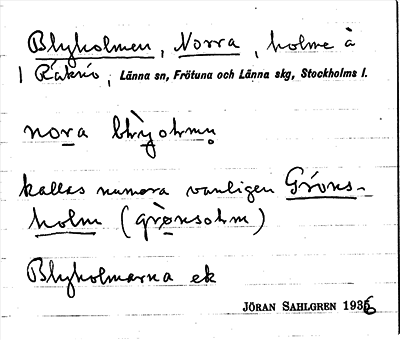 Blyholmen, Norra, holme å
Räknö, Länna sn, Frötuna och Länna skg, Stockholms l.
nora blỳohmn̥
kallas numera vanligen Gröns-
holm (grònsohm)
Blyholmarna ek
JÖRAN SAHLGREN 1936